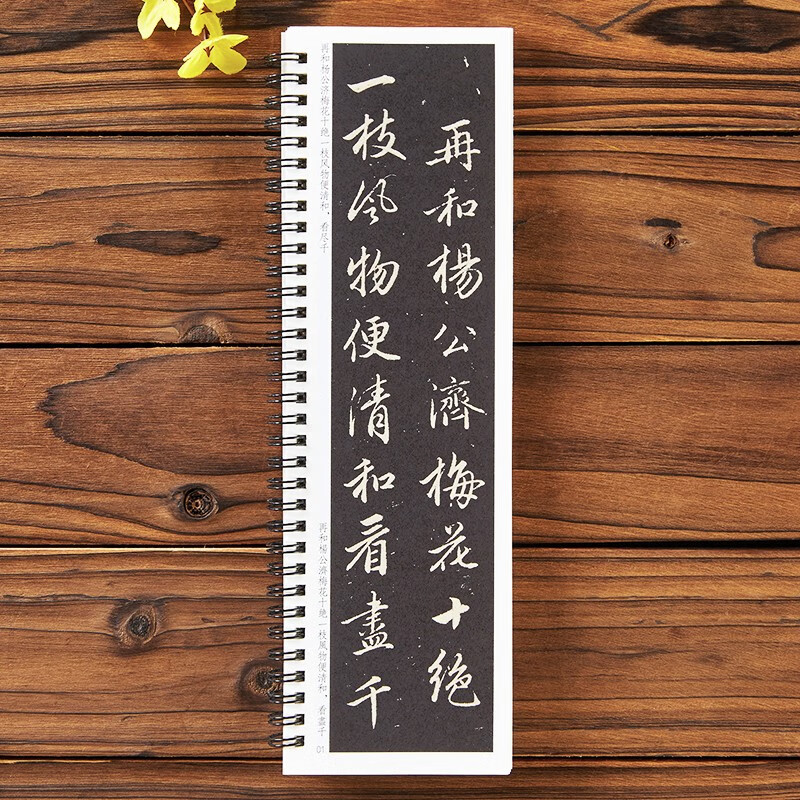 再和楊公濟梅花十绝
一枝风物便清和看盡千
再和杨公济梅花十绝一枝风物便清和，看尽千
再和楊公濟梅花十绝一枝風物便清和，看盡千
01